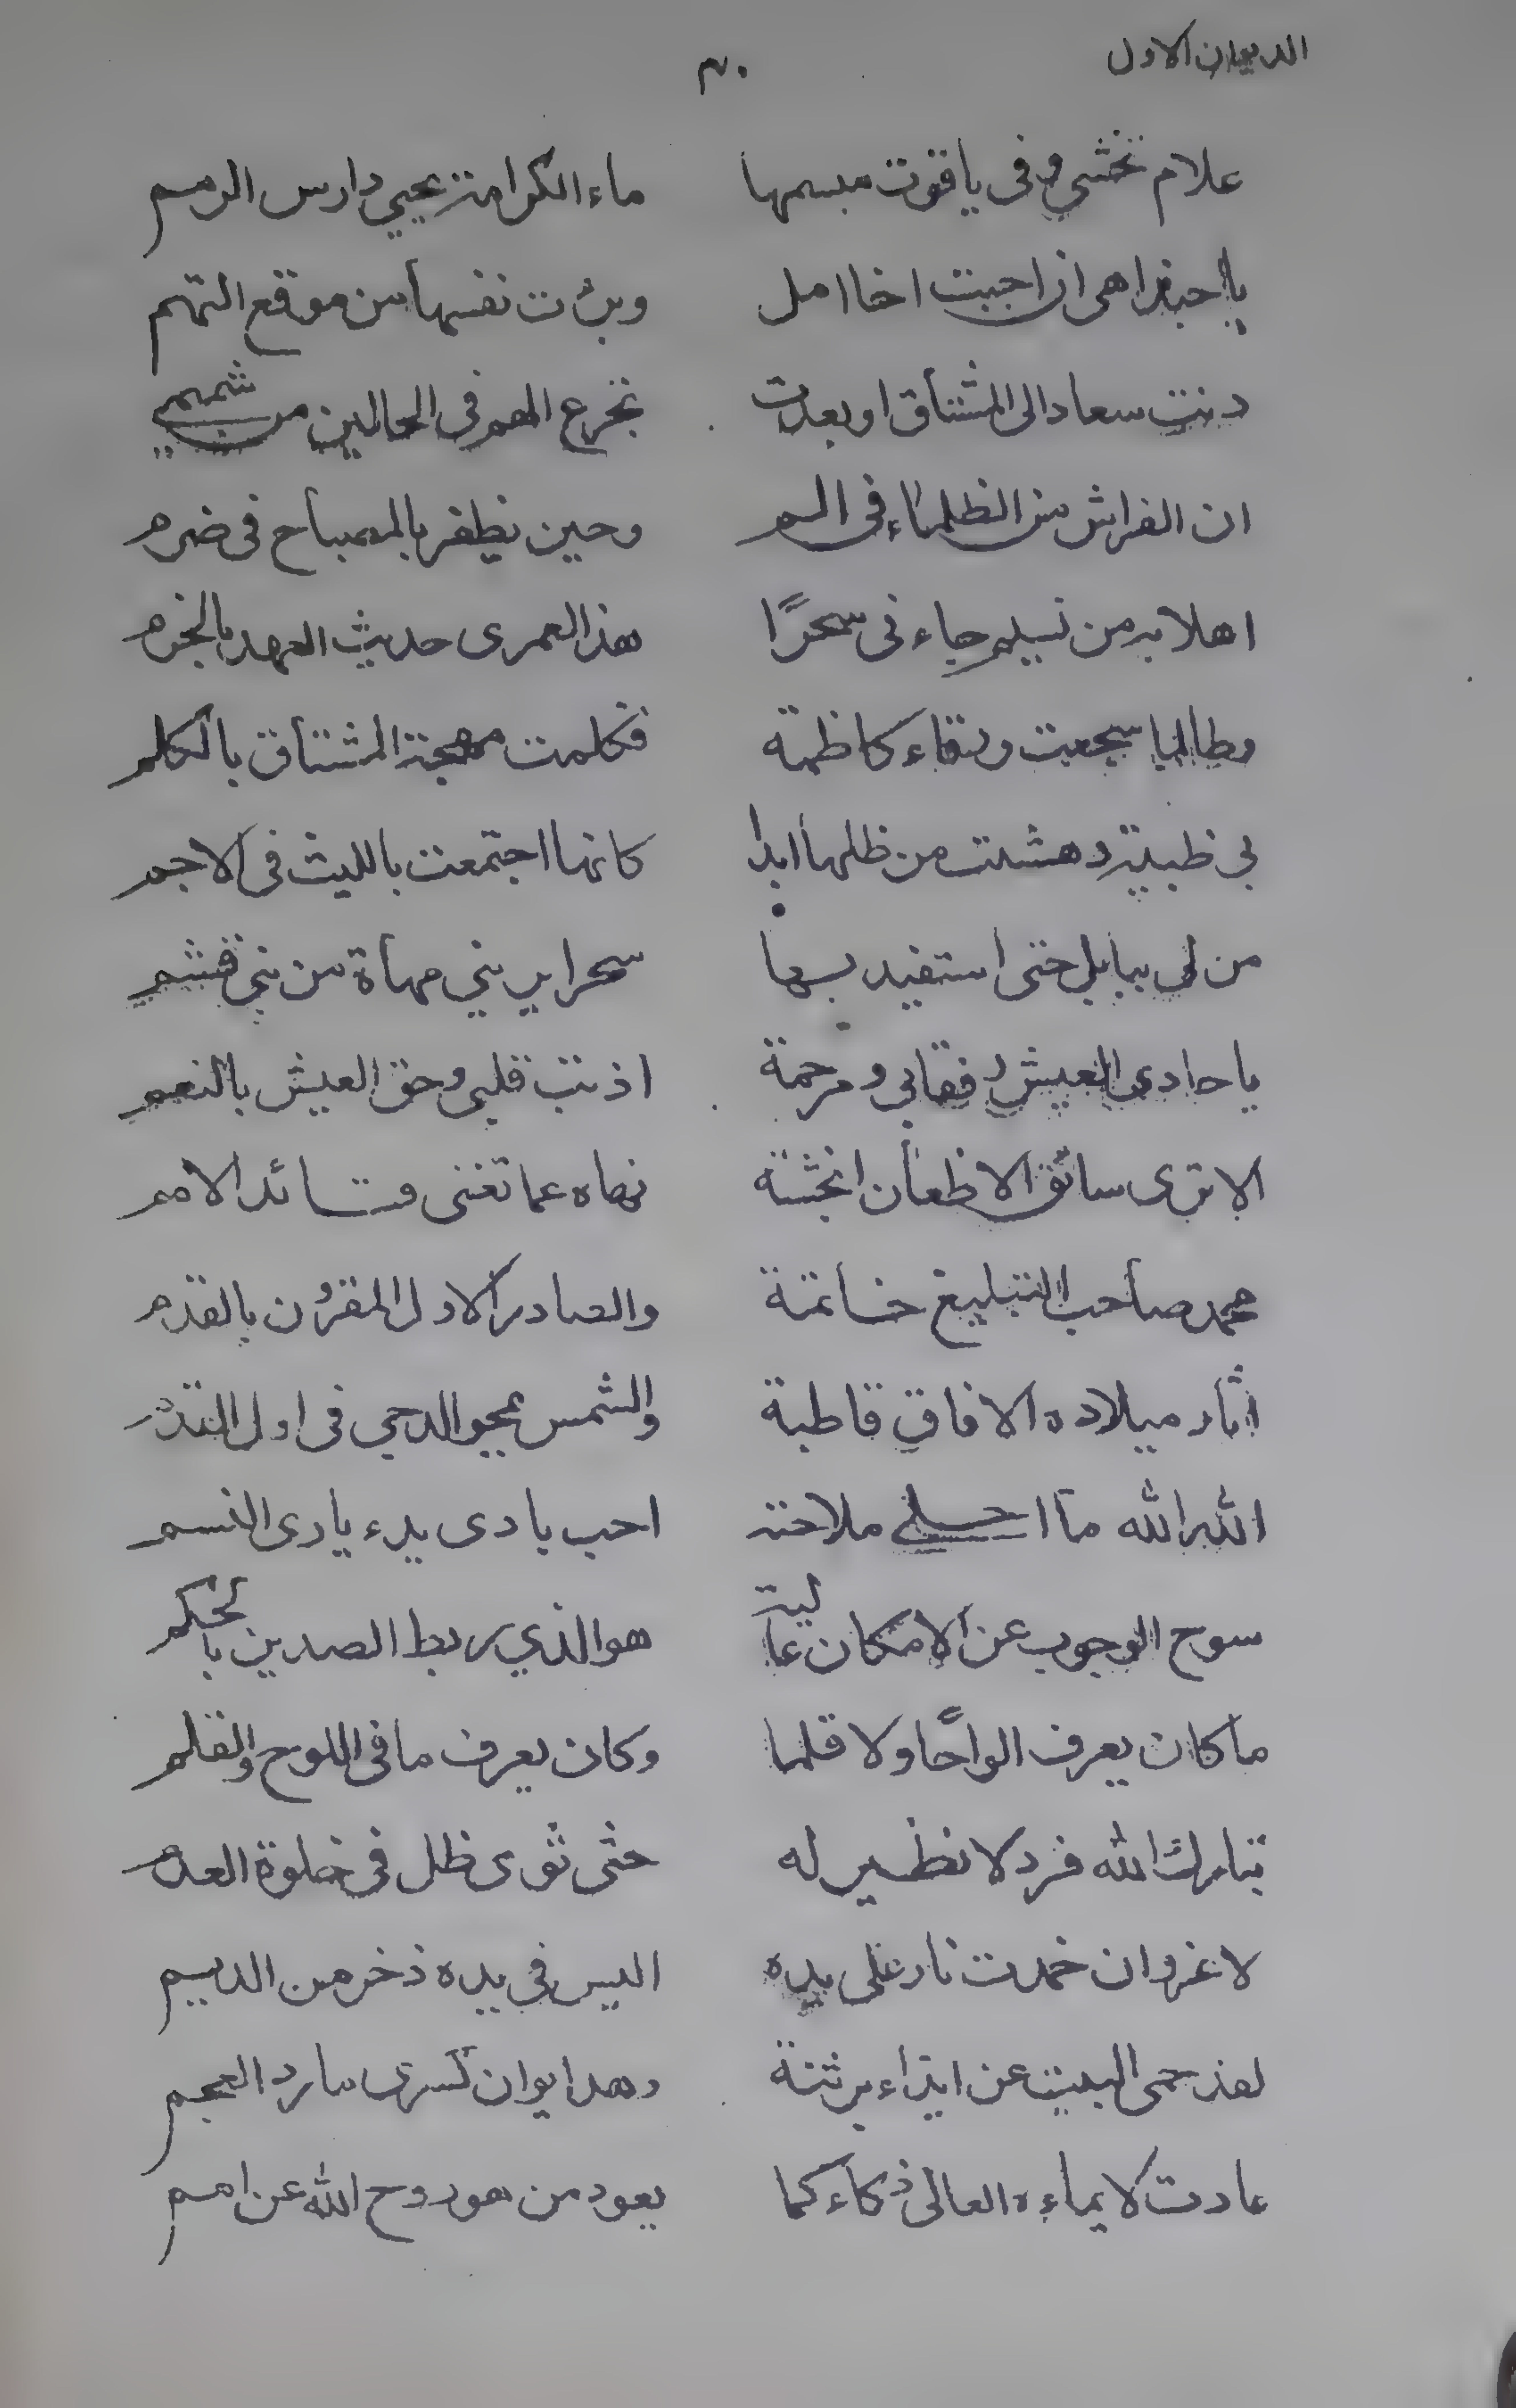 الديوان الاول ٣٠
علام تخشى وفى ياقوت مبسمها ماء الكرامة يحيي دارس الرمم
يا حبذا هى ان احبت اخا امل وبرئت نفسها من موقع التهم
دنت سعاد الى المشتاق او بعدت تجرع الهم فى الحالين من شميمي
ان الفراش من الظلماء فى الم وحين يظفر بالمصباح فى ضرم
اهلا به من نسيم جاء نى سحرًا هذا لعمرى حديث العهد بالخرم
وطالما سجعت ورقاء كاظمة فكلمت مهجة المشتاق بالكلم
بي ظبية دهشت من ظلها ابدا كانها اجتمعت بالليث فى الاجم
من لى ببابل حتى استفيد بها سحرا يريني مهاة من بني قشم
يا حادى العيش رفقا بي ومرحمة اذنت قلبى وحق العيش بالنعم
الا ترى سائق الاظعان انجشة نهاه عما تغنى قائد الامم
محمد صاحب التبليغ خاتمة والصادر الاول المقرون بالقدم
اثار ميلاده الافاق قاطبة والشمس يمحو الدجى فى اول القدم
الله الله ما احلى ملاحته احب بادى بدء يادى النسم
سوح الوجوب عن الامكان عالية هو الذي ربط الصدين بالحكم
ما كان يعرف الواحًا ولا قلما وكان يعرف ما فى اللوح والقلم
تبارك الله فرد لا نظير له حتى ثوى ظل فى خلوة العدم
لا غروان خمدت نار على يده اليس فى يده ذخر من الديم
لقد حمى البيت عن ايذاء برثنة وهد ايوان كسرى مارد العجم
عادت لايماءه العالى ذكاء كما يعود من هو روح الله عن امم